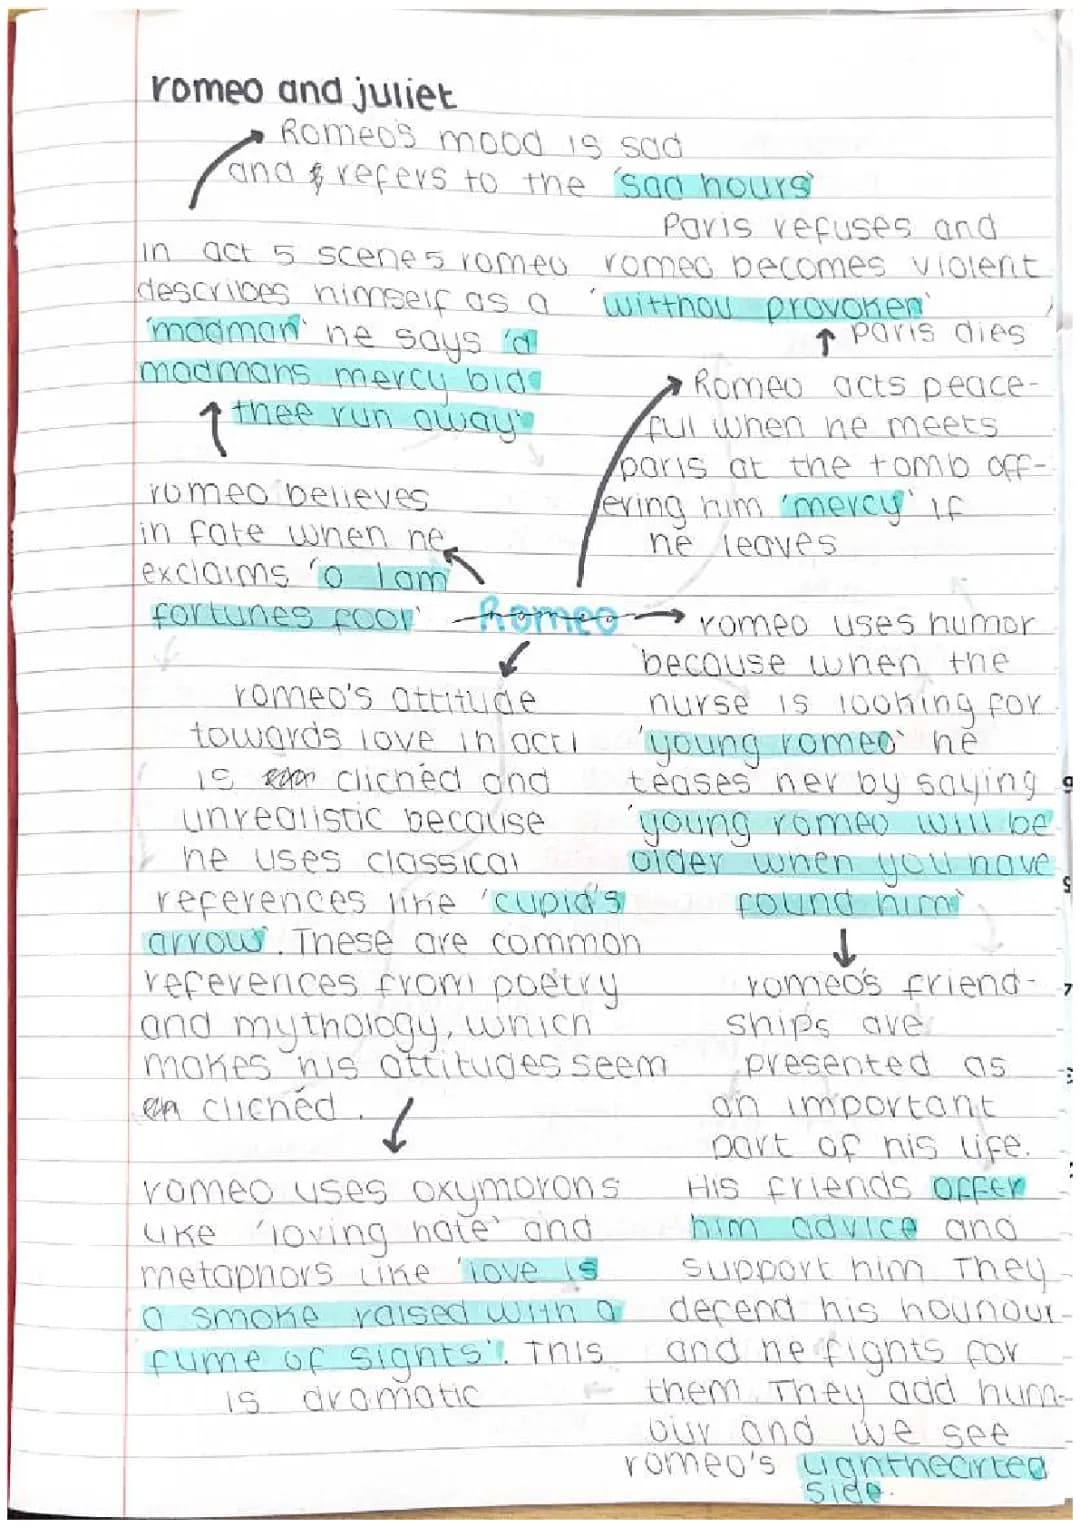 romeo and juliet
Romeo's mood is sad
and refers to the 'sad hours'
in act 5 scene 5 romeo
describes himself as a
'madman' he says 'a
madmans mercy bids
thee run away'
romeo believes
in fate when he
exclaims 'o I am
fortunes fool'
Paris refuses and
romeo becomes violent
'witthou provoken'
Paris dies
Romeo acts peace-
ful when he meets
paris at the tomb off-
ering him 'mercy' if
he leaves
Romeo
romeo's attitude
towards love in act 1
is clichéd and
unrealistic because
he uses classical
references like 'cupid's
arrow'. These are common
references from poetry
and mythology, which
makes his attitudes seem
clichéd.
romeo uses oxymorons
like 'loving hate' and
metaphors like 'love is
a smoke raised with a
fume of sights'. This
is dramatic
romeo uses humor
because when the
nurse is looking for
'young romeo' he
teases her by saying
'young romeo will be
older when you have
found him'
romeo's friend-
ships are
presented as
an important
part of his life.
His friends offer
him advice and
support him They
defend his hounour
and he fights for
them They add hum-
our and we see
romeo's lighthearted
side.